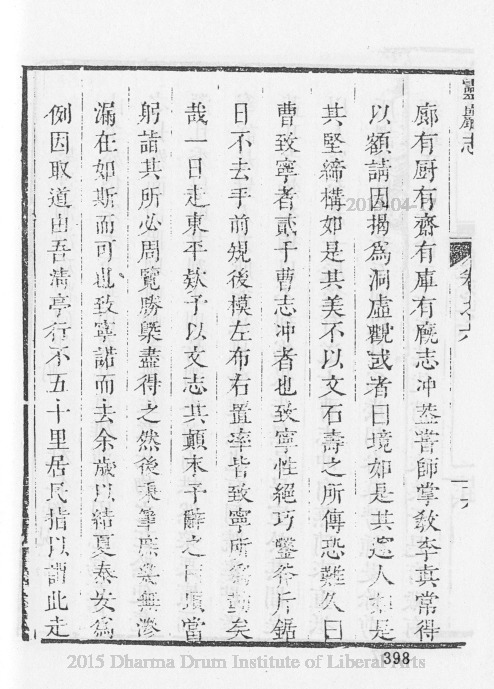 靈巖志
卷之六
廊有厨有齋有庫有廐志冲蓋嘗師掌敎李真常得
以額請因揭爲洞虛觀或者曰境如是其邃人如是
其堅締構如是其美不以文石壽之所傳恐難久曰
曹致寧者貳于曹志冲者也致寧性絕巧鑿斧斤鋸
日不去手前規後模左布右置率皆致寧所爲勤矣
哉一日走東平欵予以文志其顛末予辭之曰須當
躬詣其所必周覽勝槩盡得之然後秉筆庶無滲
漏在如斯而可也致寧諾而去余歲以結夏泰安爲
例因取道由吾淸亭行不五十里居民指以謂此走
398
2015 Dharma Drum Institute of Liberal Arts